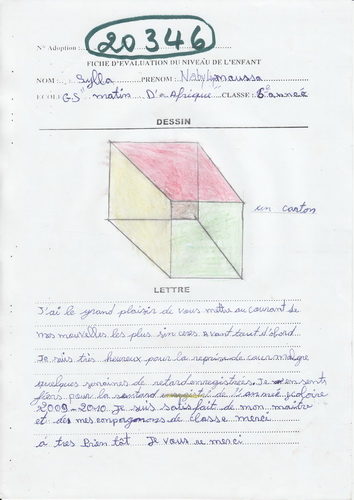 N° Adoption : 20346
FICHE D'EVALUATION DU NIVEAU DE L'ENFANT
NOM : Sylla PRENOM : Nabylmoussa
ECOLE GS " matin D'a Afrique CLASSE : 6°année
DESSIN
un carton
LETTRE
J'ai le grand plaisir de vous mettre au courant de
mes nouvelles les plus sin ceres. Avant tout d'abord
Je suis très heureux pour la reprise de cour malgre
quelques semaines de retard enregistrées. Je sents
fiers pour la de l'année scolaire
2009-2010. Je suis satisfait de mon maitre
et de mes compagnons de classe merci
à très bien tôt Je vous remerci